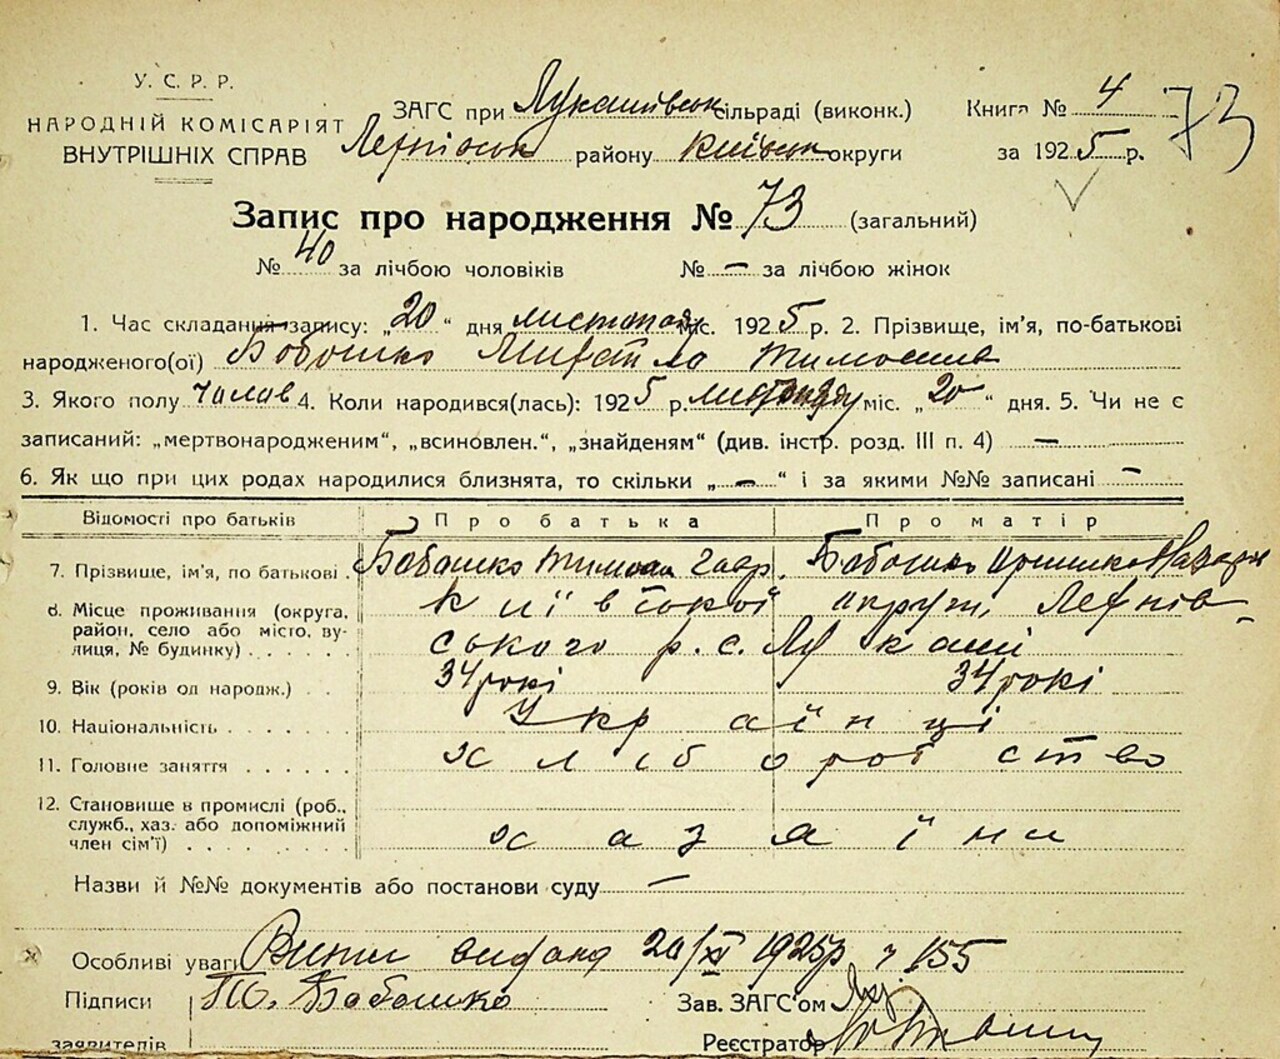 У. С. Р. Р.
НАРОДНІЙ КОМІСАРІЯТ
ВНУТРІШНІХ СПРАВ
ЗАГС при Лукашівськ сільраді (виконк.)
районy Київськ округи
Книга № 4
за 1925 р.
73
Запис про народження № 73 (загальний)
№ 40 за лічбою чоловіків № — за лічбою жінок
1. Час складання запису: „20“ дня листопада міс. 1925 р. 2. Прізвище, ім'я, по-батькові
народженого(ої) Бабошко
3. Якого полу 4. Коли народився(лась): 1925 р. листопаду міс. „20“ дня. 5. Чи не є
записаний: „мертвонародженим“, „всиновлен.“, „знайденям“ (див. інстр. розд. III п. 4) —
6. Як що при цих родах народилися близнята, то скільки „—“ і за якими №№ записані —
Відомості про батьків Про батька Про матір
7. Прізвище, ім'я, по батькові . Бабошко Бабошко
8. Місце проживання (округа, Київської округи
район, село або місто, ву- ського р. с. Лукаші
лиця, № будинку) . . . . . .
9. Вік (років од народж.) . . 34 рокі 34 рокі
10. Національність . . . . . . . Українці
11. Головне заняття . . . . . . хліборобство
12. Становище в промислі (роб.,
служб., хаз. або допоміжний
член сім'ї) . . . . . . . . хазяїни
Назви й №№ документів або постанови суду —
Особливі уваги 20/XI 1925 р 155
Підписи Бабошко Зав. ЗАГС'ом
заявителів Реєстратор